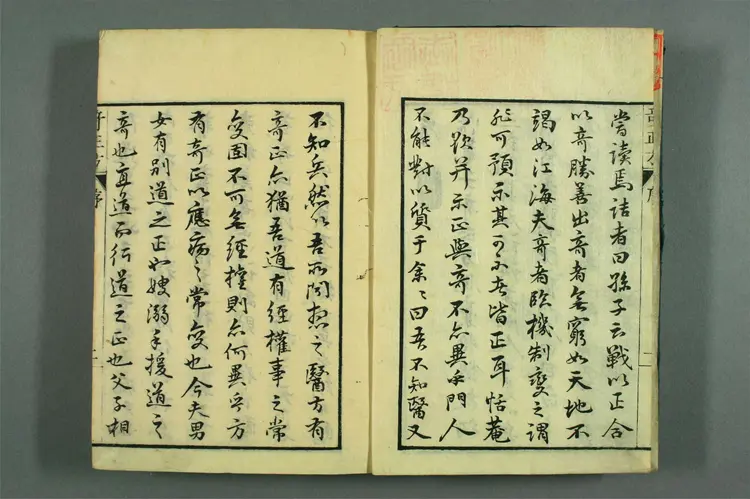 嘗讀焉詰者曰孫子云戰以正合
以奇勝善出奇者無窮如天地不
竭如江海夫奇者臨機制變之謂
非可預示其可示者皆正耳恬菴
乃欲并示正與奇不亦異乎門人
不能對以質于余〻曰吾不知醫又
不知兵然以吾所聞想之醫方有
奇正亦猶吾道有經權事之常
變固不可無經權則亦何異乎方
有奇正以應病之常變也今夫男
女有別道之正也嫂溺手援道之
奇也直道而行道之正也父子相
奇正方 序 二